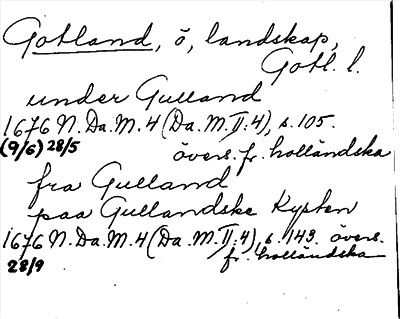 Gotland, ö, landskap,
Gotl. l.
under Gulland
1676 N.Da.M.4 (Da.M.II:4), s.105.
(9/6) 28/5
övers. fr. holländska
fra Gulland
paa Gullandske Kysten
1676 N.Da.M.4 (Da.M.II:4), s.143. övers.
28/9
fr. holländska